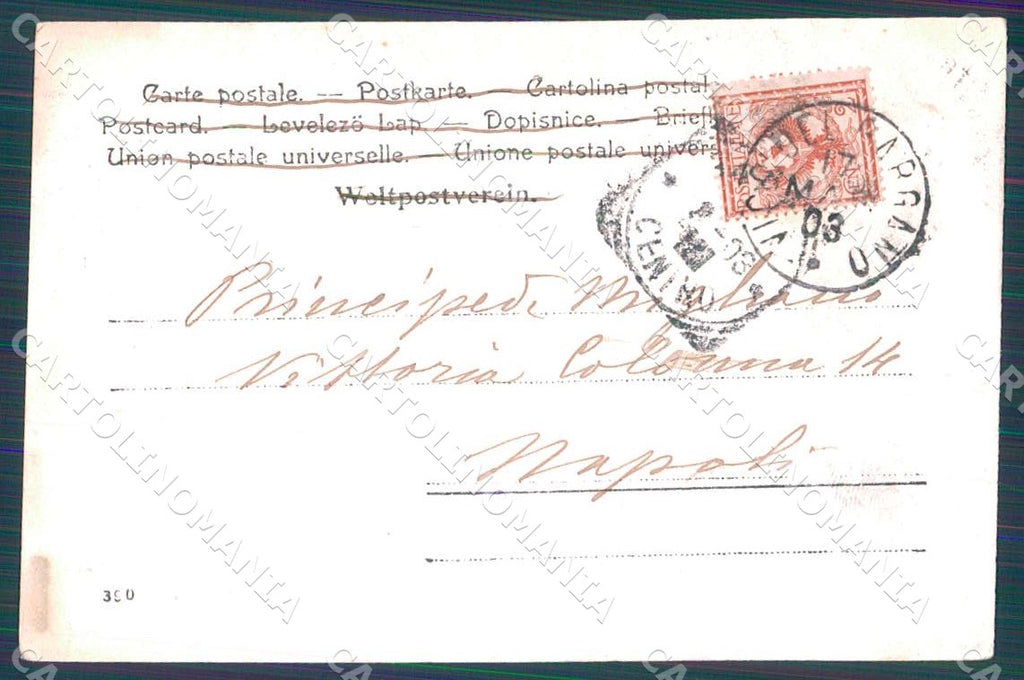 Carte postale. -- Postkarte. — Cartolina postal
Postcard. — Levelező Lap. — Dopisnice. — Brief
Union postale universelle. — Unione postale univers
Weltpostverein.
GARGANO
03
Principe di Migliano
Vittoria Colonna 14
Napoli
390
CARTOLINOMANIA